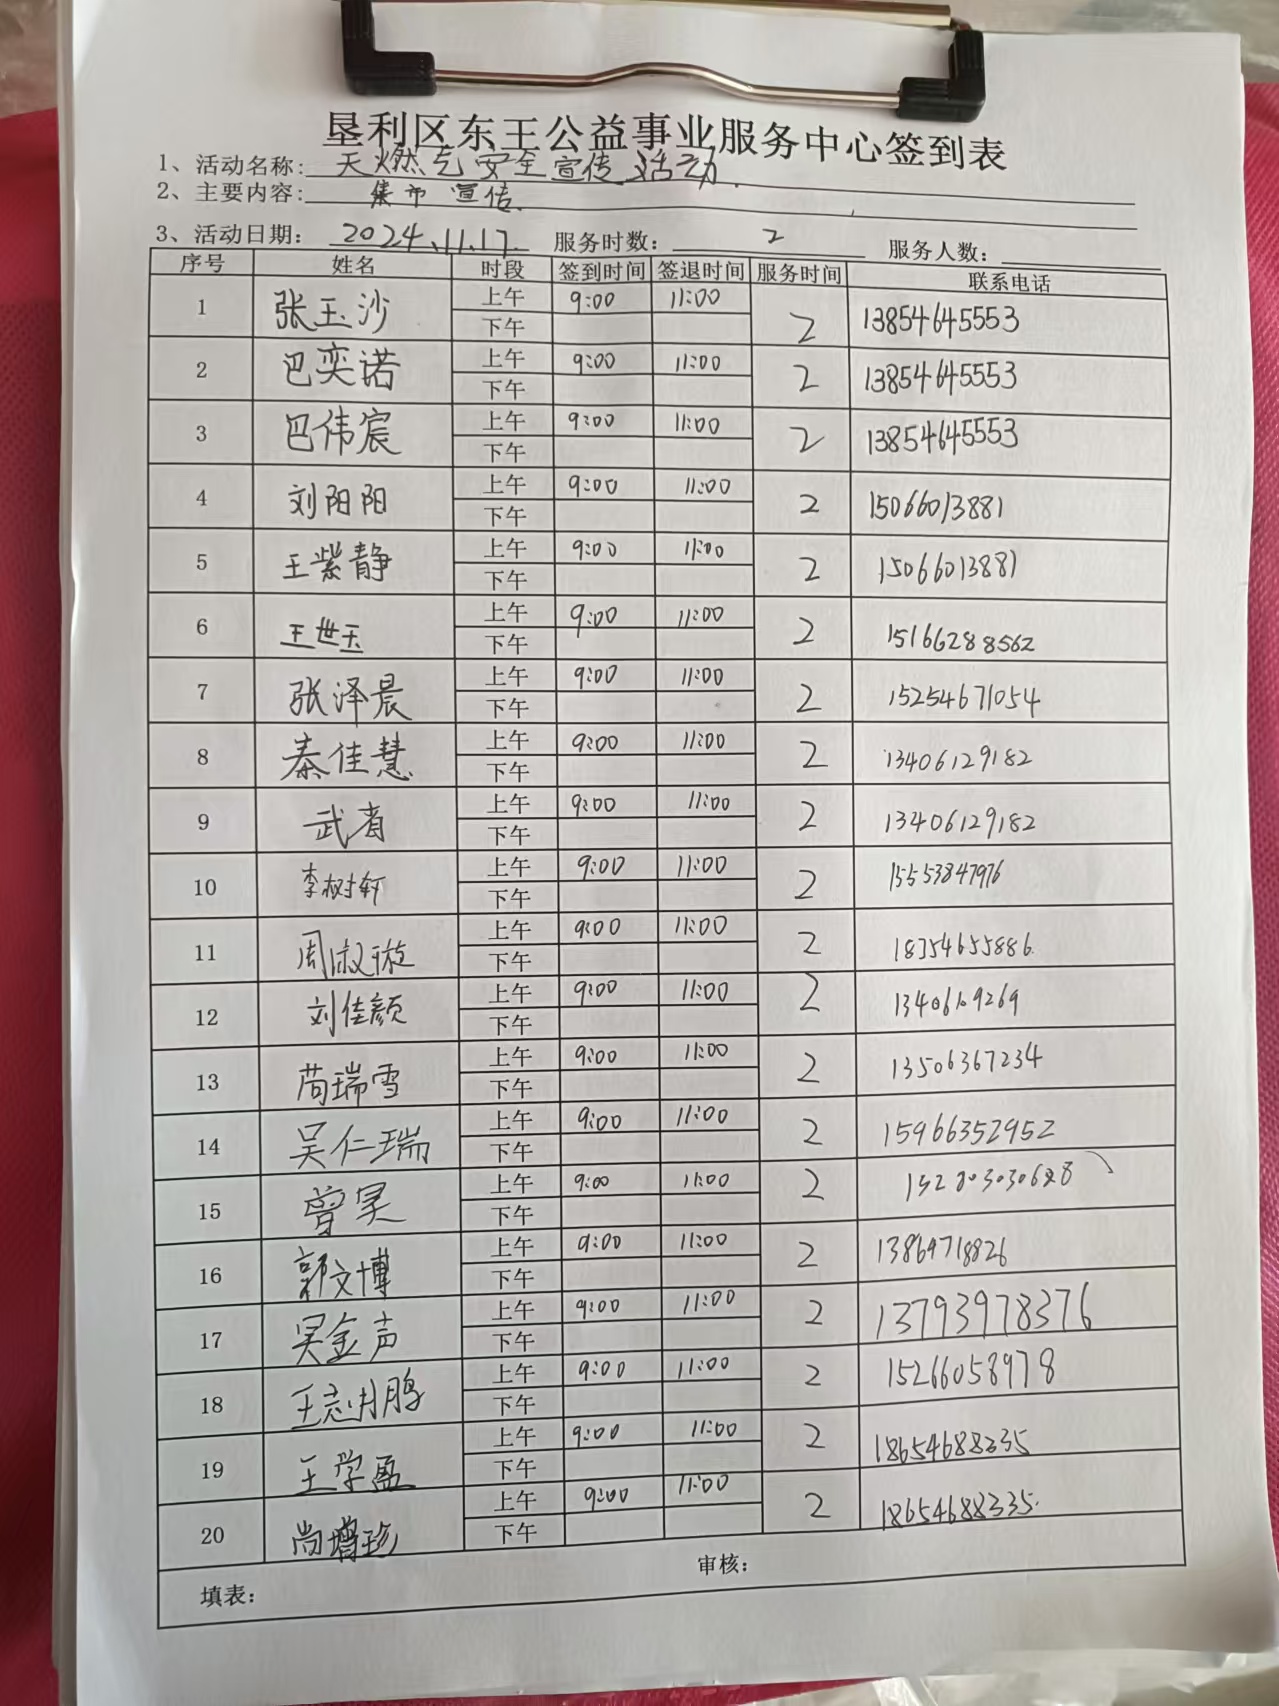 垦利区东王公益事业服务中心签到表
1、活动名称: 天燃气安全宣传活动.
2、主要内容: 集市 宣传.
3、活动日期: 2024.11.17. 服务时数: 2 服务人数:
序号 姓名 时段 签到时间 签退时间 服务时间 联系电话
1 张玉沙 上午 9:00 11:00 2 13854645553
下午
2 巴奕诺 上午 9:00 11:00 2 13854645553
下午
3 巴伟宸 上午 9:00 11:00 2 13854645553
下午
4 刘阳阳 上午 9:00 11:00 2 15066013881
下午
5 王紫静 上午 9:00 11:00 2 15066013881
下午
6 王世玉 上午 9:00 11:00 2 15166288562
下午
7 张泽晨 上午 9:00 11:00 2 15254671054
下午
8 秦佳慧 上午 9:00 11:00 2 13406129182
下午
9 武 上午 9:00 11:00 2 13406129182
下午
10 李树轩 上午 9:00 11:00 2 15553847976
下午
11 周淑璇 上午 9:00 11:00 2 18354655886.
下午
12 刘佳颜 上午 9:00 11:00 2
下午
13 苘瑞雪 上午 9:00 11:00 2 13506367234
下午
14 吴仁瑞 上午 9:00 11:00 2 15966352952
下午
15 曾昊 上午 9:00 11:00 2
下午
16 郭文博 上午 9:00 11:00 2 13869718826
下午
17 吴金声 上午 9:00 11:00 2 13793978376
下午
18 王志鹏 上午 9:00 11:00 2 15266058978
下午
19 王学盈 上午 9:00 11:00 2 18654688335
下午
20 尚增珍 上午 9:00 11:00 2 18654688335.
下午
填表: 审核: